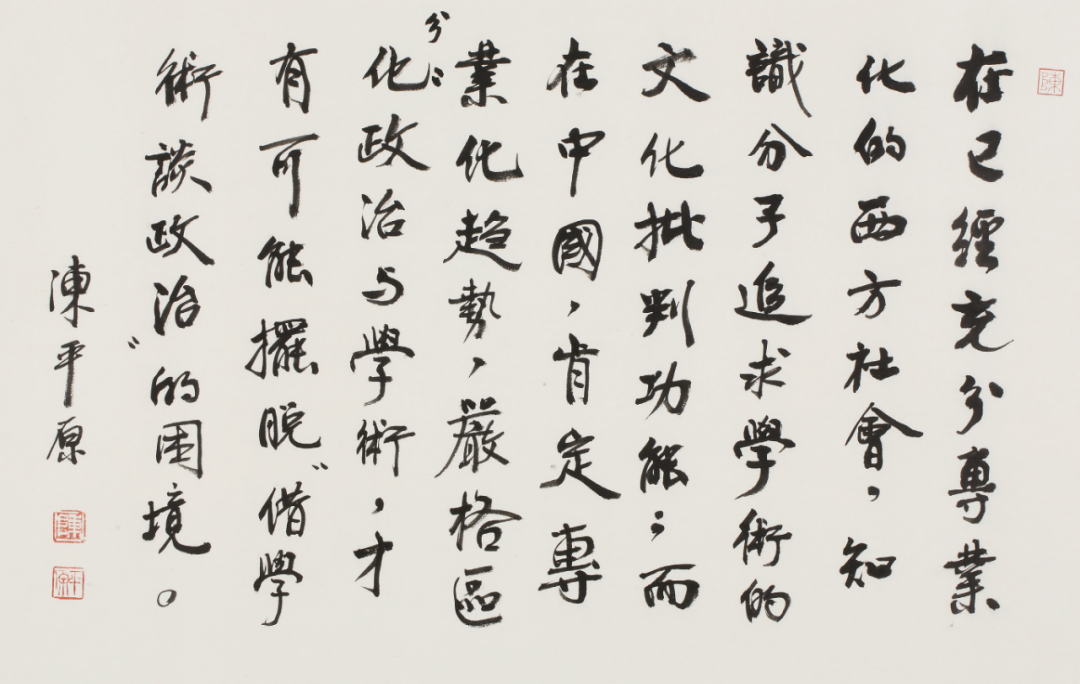 陳
在已經充分專業
化的西方社會，知
識分子追求學術的
文化批判功能；而
在中國，肯定專
業化趨勢，嚴格區
分
化政治与學術，才
有可能擺脫“借學
術談政治”的困境。
陳平原
平原